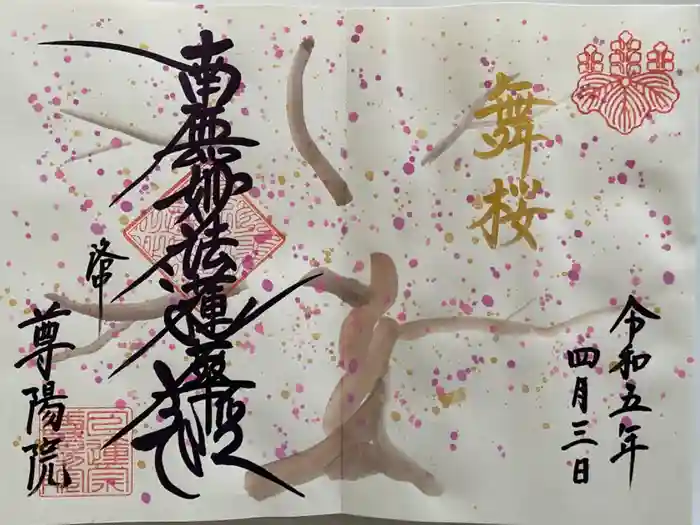 舞桜
令和五年
四月三日
南無妙法蓮華経
洛中
尊陽院